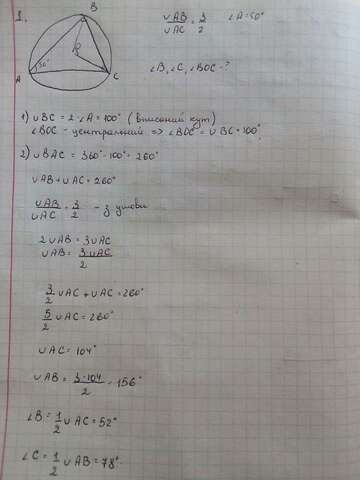 1.
B
O
50°
A
C
∪AB/∪AC = 3/2 ∠A=50°
∠B, ∠C, ∠BOC - ?
1) ∪BC = 2·∠A = 100° (вписаний кут)
∠BOC - центральний => ∠BOC = ∪BC = 100°.
2) ∪BAC = 360° - 100° = 260°
∪AB + ∪AC = 260°
∪AB/∪AC = 3/2 - з умови
2∪AB = 3∪AC
∪AB = 3∪AC/2
3/2 ∪AC + ∪AC = 260°
5/2 ∪AC = 260°
∪AC = 104°
∪AB = 3·104/2 = 156°
∠B = 1/2 ∪AC = 52°
∠C = 1/2 ∪AB = 78°